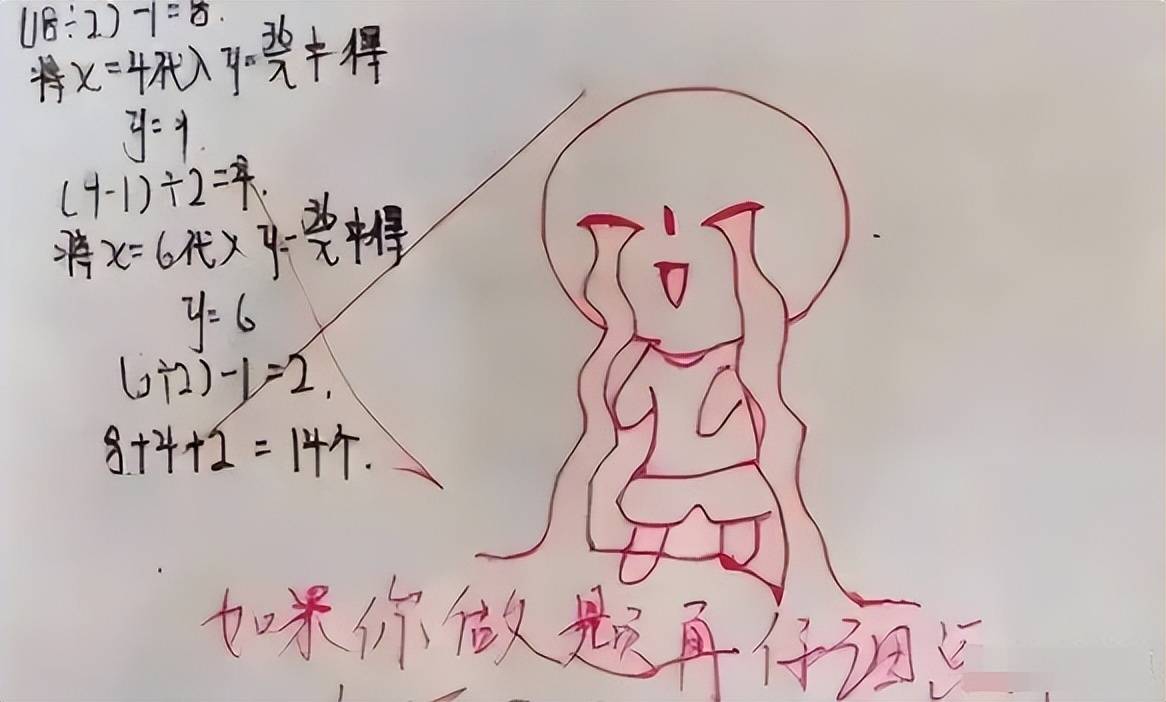 (18÷2)-1=8.
将x=4代入y=36/x中得
y=9.
(9-1)÷2=4.
将x=6代入y=36/x中得
y=6
(6÷2)-1=2.
8+4+2=14个.
如果你做题再仔细点